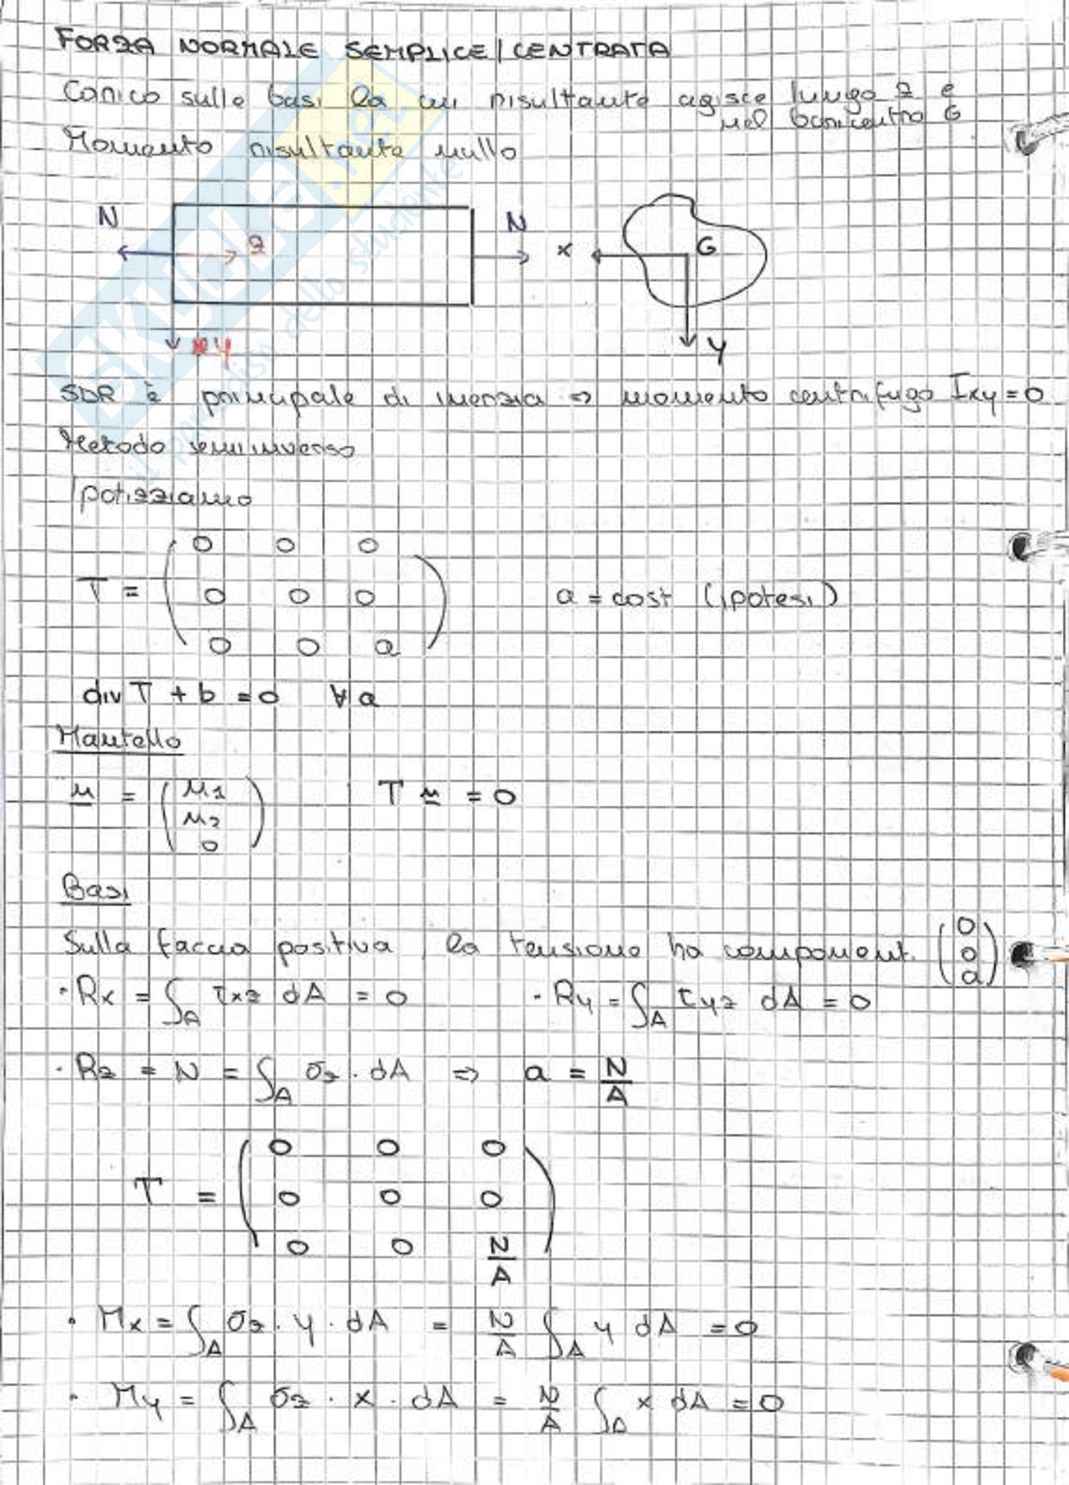 FORZA NORMALE SEMPLICE/CENTRATA
Carico sulle basi la cui risultante agisce lungo z e
nel baricentro G
Momento risultante nullo
N
z
N
y
x
G
y
SDR è principale di inerzia => momento centrifugo Ixy = 0
Metodo semi inverso
Ipotizziamo
T = ( 0 0 0
0 0 0
0 0 a ) a = cost (ipotesi)
div T + b = 0 ∀ a
Mantello
n = ( n1
n2
0 ) T n = 0
Basi
Sulla faccia positiva, la tensione ha component. ( 0
0
a )
· Rx = ∫A τxz dA = 0 · Ry = ∫A τyz dA = 0
· Rz = N = ∫A σz · dA => a = N/A
T = ( 0 0 0
0 0 0
0 0 N/A )
· Mx = ∫A σz · y · dA = N/A ∫A y dA = 0
· My = ∫A σz · x · dA = N/A ∫A x dA = 0
SKUOLA.net
il paradiso dello studente